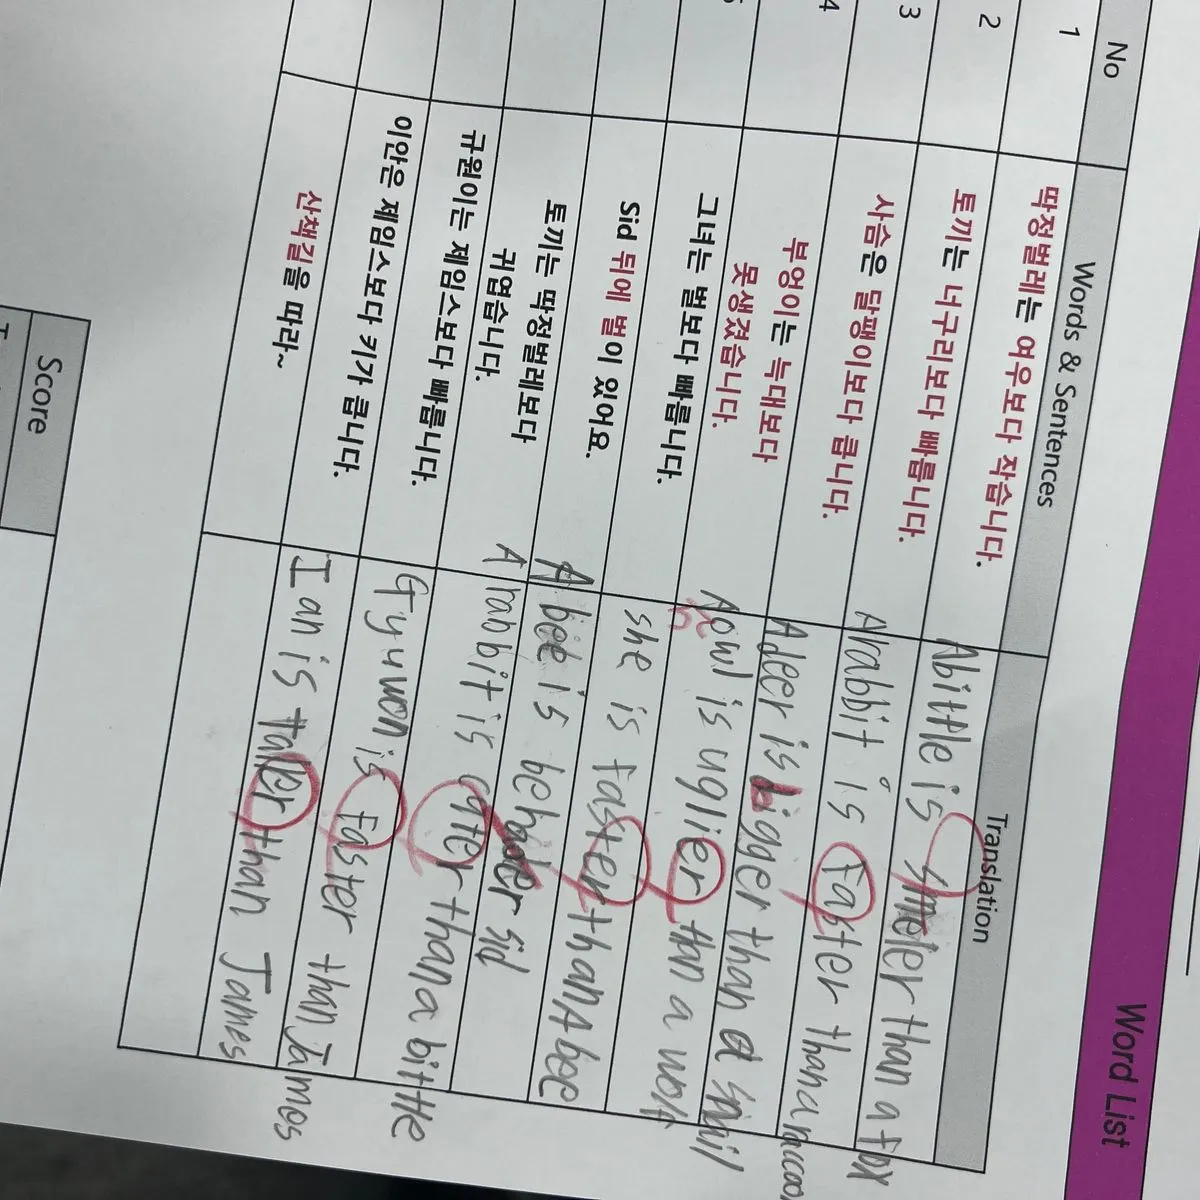 Word List
No
Words & Sentences
Translation
1
딱정벌레는 여우보다 작습니다.
A bittle is smoler than a fox
2
토끼는 너구리보다 빠릅니다.
A rabbit is faster than a raccoo
3
사슴은 달팽이보다 큽니다.
A deer is bigger than a snail
4
부엉이는 늑대보다
못생겼습니다.
A owl is uglier than a wolf
n
5
그녀는 벌보다 빠릅니다.
she is faster than A bee
Sid 뒤에 벌이 있어요.
A bee is behind sid
토끼는 딱정벌레보다
귀엽습니다.
A rabbit is cuter than a bittle
규원이는 제임스보다 빠릅니다.
Gyuwon is faster than James
이안은 제임스보다 키가 큽니다.
Ian is taller than James
산책길을 따라~
Score